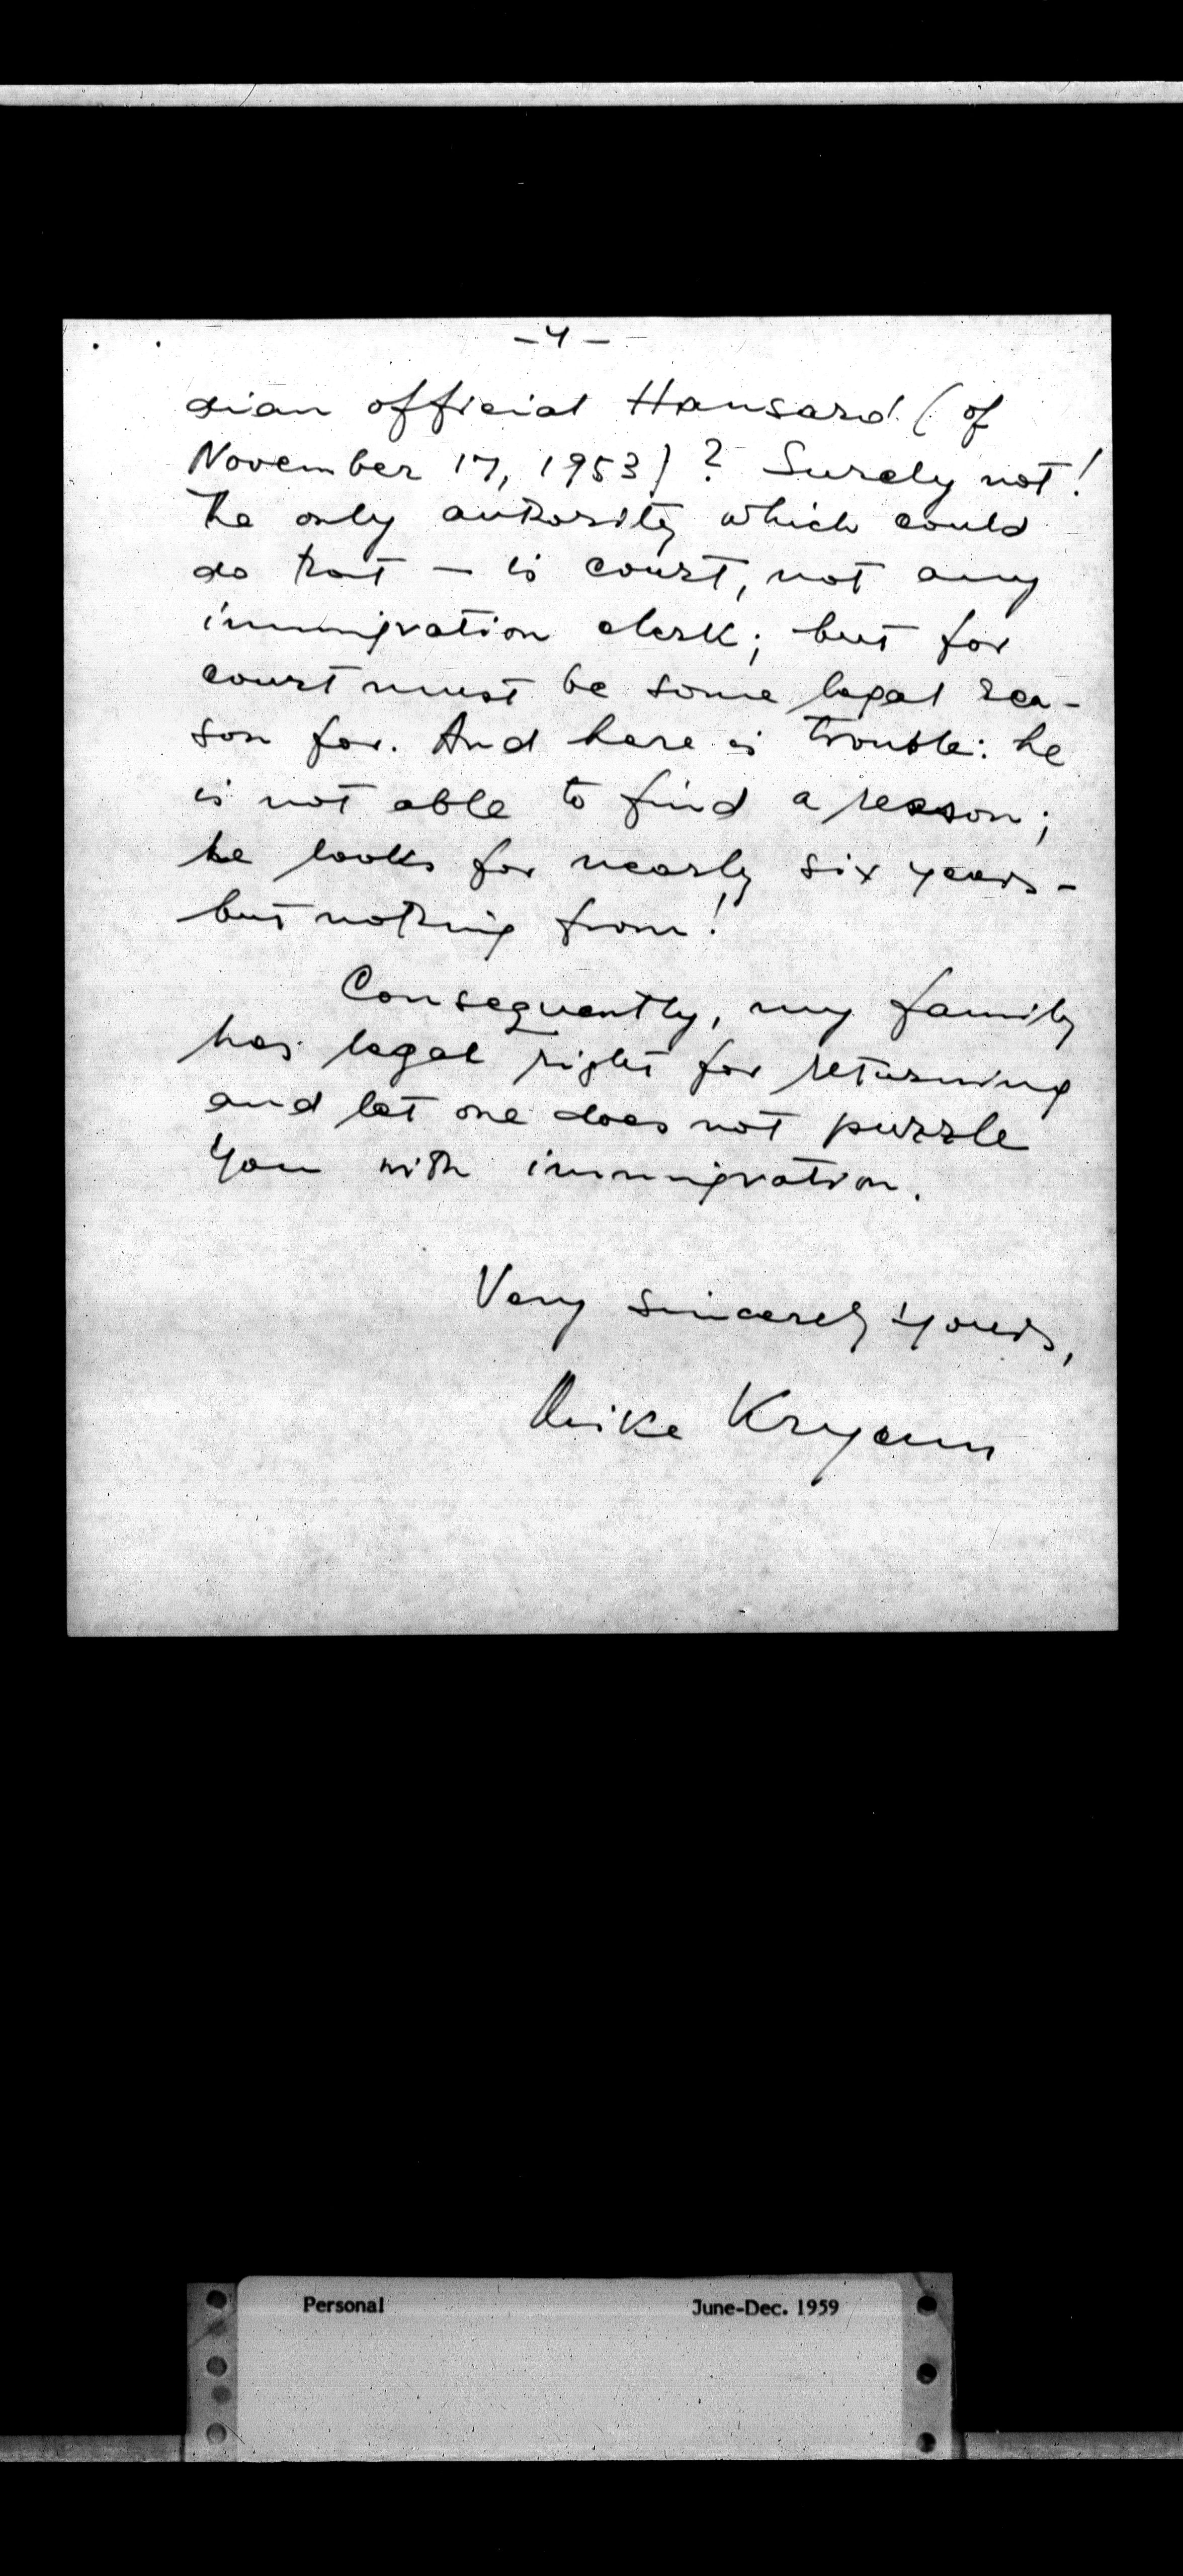 -4-
dian official Hansard (of
November 17, 1953)? Surely not!
The only authority which could
do that - is court, not any
immigration clerk; but for
court must be some legal rea-
son for. And here is trouble: he
is not able to find a reason;
he looks for nearly six years -
but nothing from!
Consequently, my family
has legal right for returning
and let one does not puzzle
You with immigration.
Very sincerely Yours,
Mike Kryann
Personal June-Dec. 1959